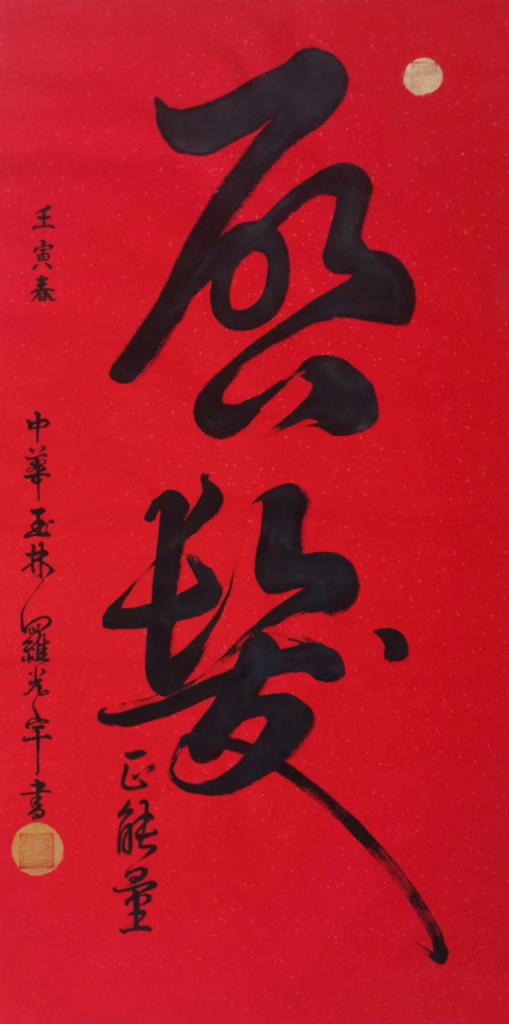 启髮
正能量
壬寅春
中華玉林羅光宇書